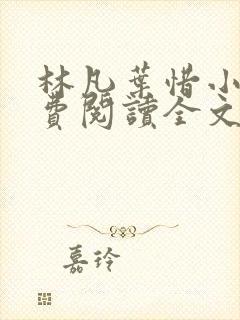 林凡葉惜小
費閱讀全文
嘉玲